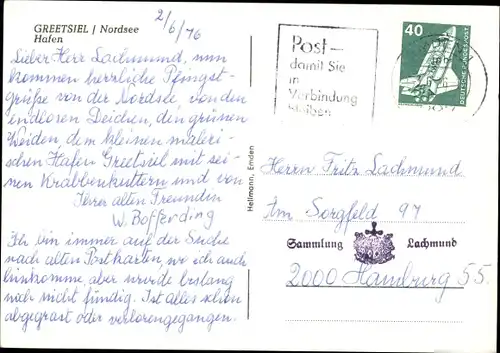 GREETSIEL / Nordsee
Hafen
2/6/76
Lieber Herr Lachmund, nun
kommen herrliche Pfingst-
grüße von der Nordsee, von den
endlosen Deichen, den grünen
Weiden, dem kleinen maleri-
schen Hafen Greetsiel mit sei-
nen Krabbenkuttern und von
Ihrer alten Freundin
W. Bofferding
Ich bin immer auf der Suche
nach alten Postkarten, wo ich auch
hinkomme, aber wurde bislang
noch nicht fündig. Ist alles schon
abgegrast oder verlorengegangen.
Hellmann, Emden
Post-
damit Sie
in
Verbindung
bleiben
40
DEUTSCHE BUNDESPOST
Herrn Fritz Lachmund
Am Sorgfeld 97
Sammlung Lachmund
2000 Hamburg 55.